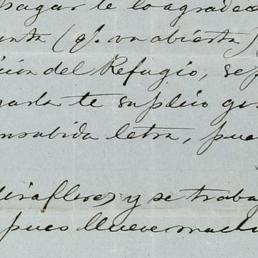 hagar te lo agradece
(q. va abierta)
ción del Refugio, se p
te suplico que
consabida letra, pues
Miraflores y se traba
pues llueve mucho